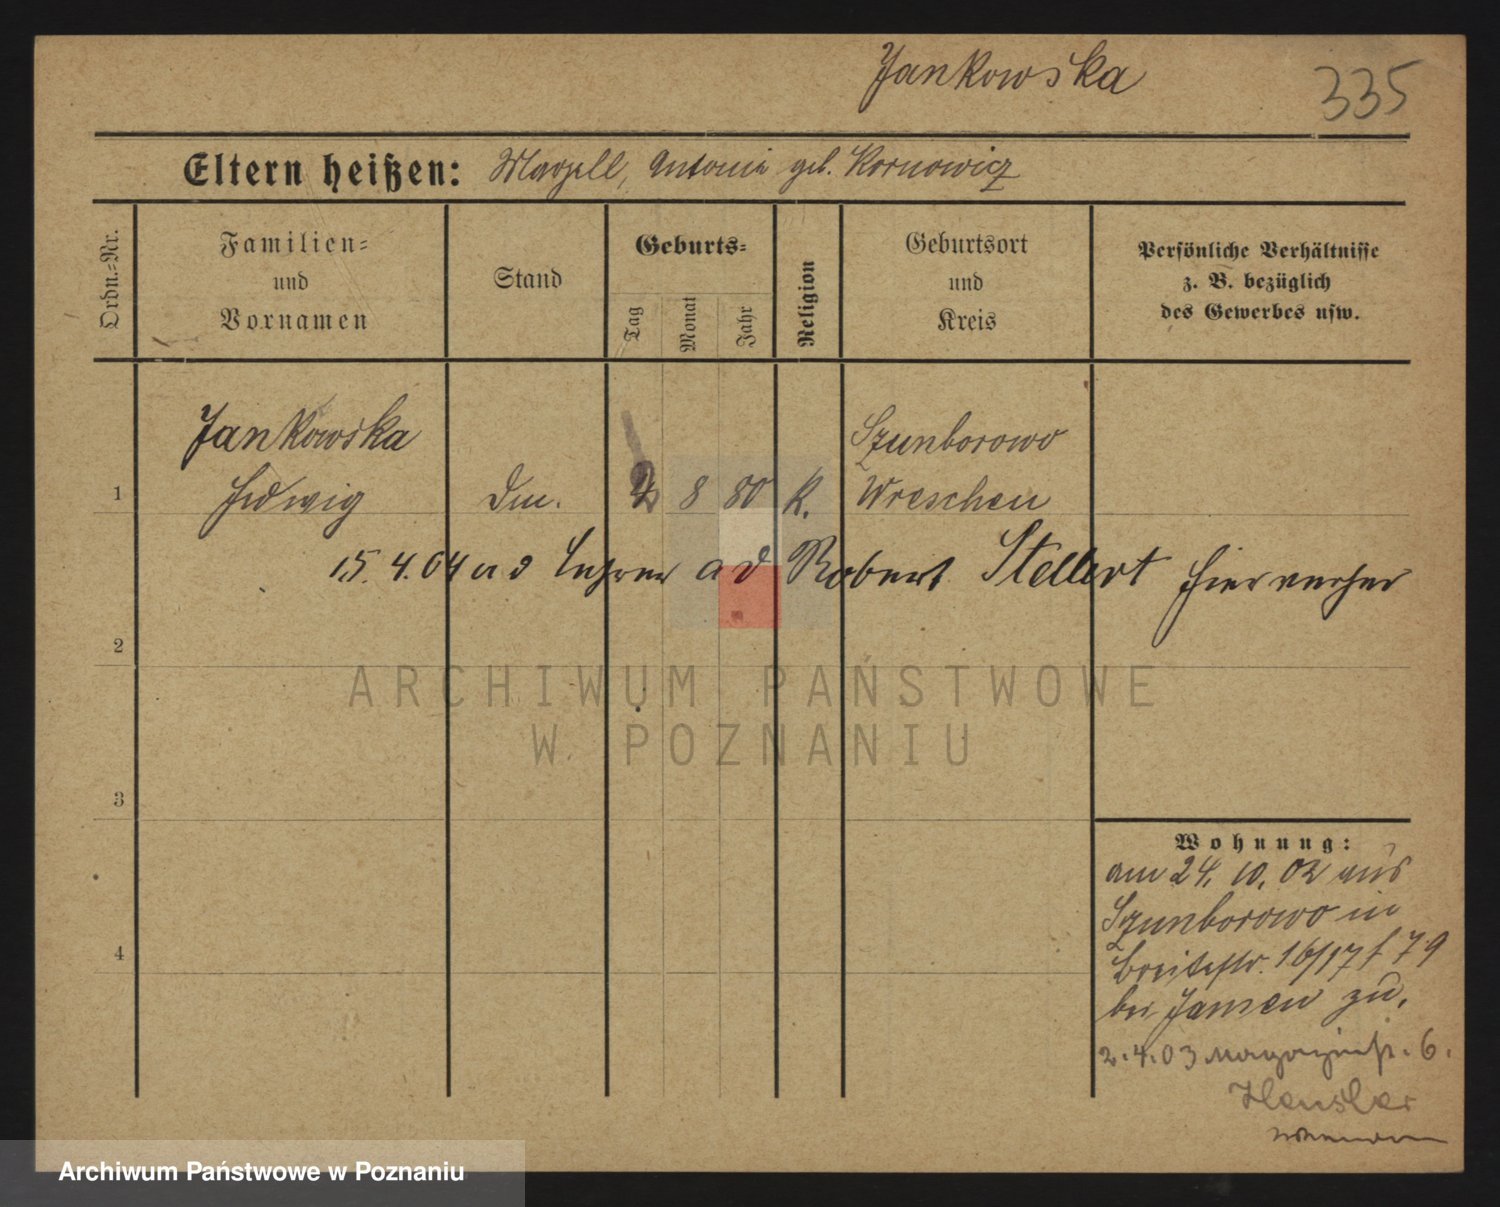 Jankowska
335
Eltern heißen: Marzell, Antonie geb. Kornowicz
Ordn.-Nr.
Familien-
und
Vornamen
Stand
Geburts-
Tag
Monat
Jahr
Religion
Geburtsort
und
Kreis
Persönliche Verhältnisse
z. B. bezüglich
des Gewerbes usw.
Jankowska
Szunborowo
1 Hedwig Dm. 2 8 80 K. Wreschen
15. 4. 04 Lehrer a D Robert Stellert hier verher
2
3
4
Wohnung:
am 24. 10. 02 aus
Szunborowo in
Breitestr. 16/17 f 79
bei Jansen zu.
2. 4. 03 Magazinstr. 6.
Hensler
ARCHIWUM PAŃSTWOWE
W POZNANIU
Archiwum Państwowe w Poznaniu